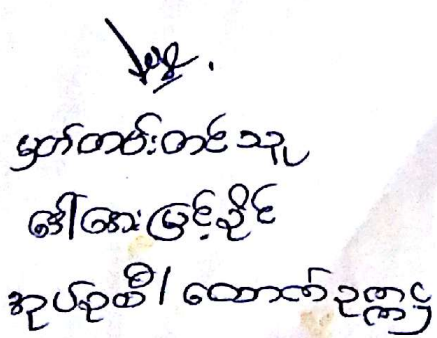 မှတ်တမ်းတင်သူ
ဒေါ်အေးမြင့်ခိုင်
အုပ်စုထိ/ထောက်ဥက္ကဌ